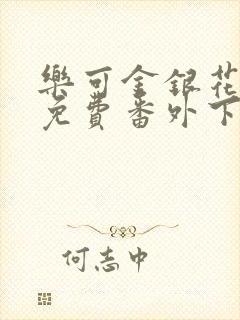 樂可金銀花
免費番外下
何志中